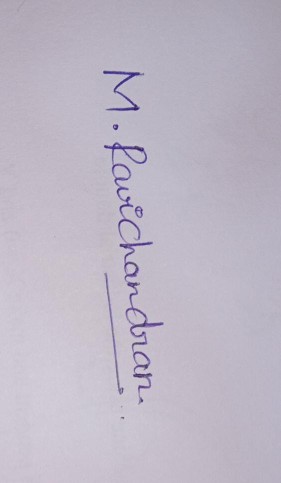 M. Ravichandran.